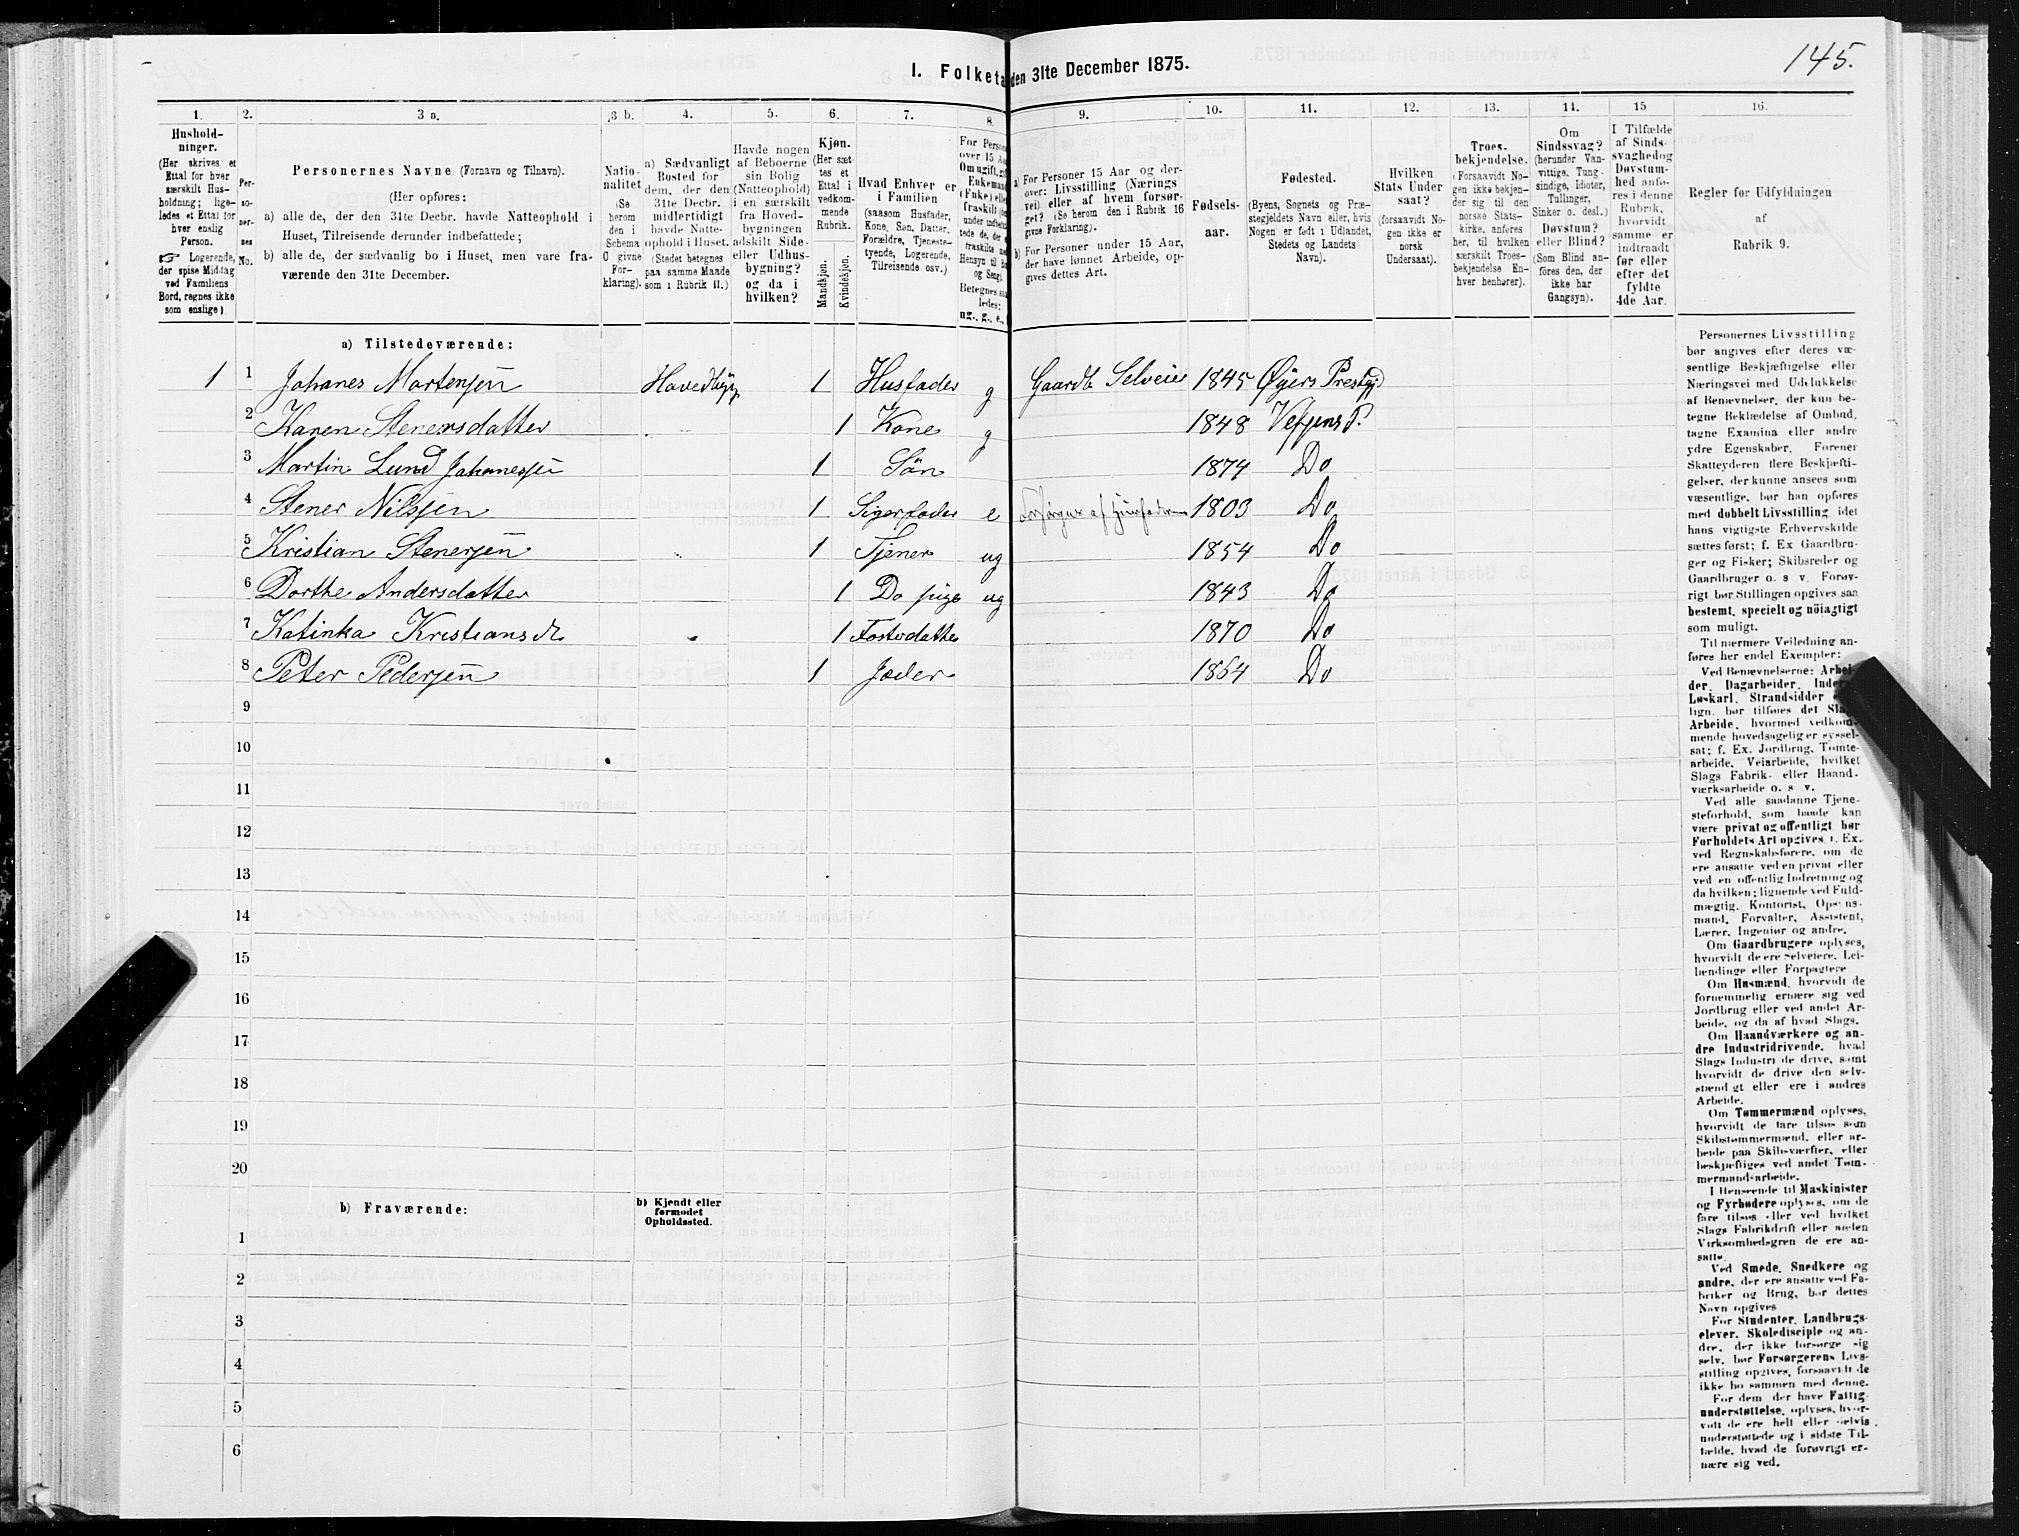 145.
I. Folketa den 31te December 1875.
1. 2. 3 a. 3 b. 4. 5. 6. 7. 8. 9. 10. 11. 12. 13. 14. 15 16.
Hushold-
ninger.
(Her skrives et
Ettal for hver
særskilt Hus-
holdning; lige-
ledes et Ettal for
hver enslig
Person.
☞ Logerende,
der spise Middag
ved Familiens
Bord, regnes ikke
som enslige)
Per-
so-
ner-
nes
No.
Personernes Navne (Fornavn og Tilnavn).
(Her opføres:
a) alle de, der den 31te Decbr. havde Natteophold i
Huset, Tilreisende derunder indbefattede;
b) alle de, der sædvanlig bo i Huset, men vare fra-
værende den 31te December.
Natio-
nalitet
(Se
herom
den i
Schema
O givne
For-
klaring).
a) Sædvanligt
Bosted for
dem, der den
31te Decbr.
midlertidigt
havde Natte-
ophold i Huset.
(Stedet betegnes
paa samme Maade
som i Rubrik 11.)
Havde nogen
af Beboerne
sin Bolig
(Natteophold)
i en særskilt
fra Hoved-
bygningen
adskilt Side-
eller Udhus-
bygning?
og da i
hvilken?
Kjøn.
(Her sæt-
tes et
Ettal i
vedkom-
mende
Rubrik.
Mandkjøn.
Kvindekjøn.
Hvad Enhver er
i Familien
(saasom Husfader,
Kone, Søn, Datter,
Forældre, Tjeneste-
tyende, Logerende,
Tilreisende osv.)
For Person
over 15 Aa
Om ugift, gif
Enkeman
(Fnke) elle
fraskilt (s
under indbefat
tede de, der e
fraskilte m
Hensyn til Bo
og Seng)
Betegnes saa
ledes:
ug., g., e.,
a) For Personer 15 Aar og der-
over: Livsstilling (Nærings
vei) eller af hvem forsør-
get? (Se herom den i Rubrik 16
givne Forklaring).
b) For Personer under 15 Aar,
der have lønnet Arbeide, op-
gives dettes Art.
Fødsels-
aar.
Fødested.
(Byens, Sognets og Præ-
stegjeldets Navn eller, hvis
Nogen er født i Udlandet,
Stedets og Landets
Navn).
Hvilken
Stats Under
saat?
(forsaavidt No-
gen ikke er
norsk
Undersaat).
Troes-
bekjendelse.
(Forsaavidt No-
gen ikke bekjen-
der sig til den
norske Stats-
kirke, anføres
her, til hvilken
særskilt Troes-
bekjendelse En-
hver henhører).
Om
Sindssvag?
(herunder Van-
vittige, Tung-
sindige, Idioter,
Tullinger,
Sinker o. desl.)
Døvstum?
eller Blind?
(Som Blind an-
føres den, der
ikke har
Gangsyn).
I Tilfælde
af Sinds-
svaghed og
Døvstum-
hed anfø-
res i denne
Rubrik,
hvorvidt
samme er
indtraadt
før eller
efter det
fyldte
4de Aar.
Regler for Udfyldningen
af
Rubrik 9.
a) Tilstedeværende:
1 1 Johanes Mortensen Hovedbyg 1 Husfader g Gaardb Selveier 1845 Øyers Prestgj
2 Karen Stenersdatter 1 Kone g 1848 Vefsens P.
3 Martin Lund Johanesen 1 Søn 1874 Do
4 Stener Nilsen 1 e Forsørges af Husfaderen 1803 Do
5 Kristian Stenersen 1 Tjener ug 1854 Do
6 Dorthe Andersdatter 1 Do pige ug 1843 Do
7 Katinka Kristiansdtr 1 Fosterdatter 1870 Do
8 Peter Pedersen 1 1864 Do
9
10
11
12
13
14
15
16
17
18
19
20
b) Fraværende:
b) Kjendt eller
formodet
Opholdssted.
1
2
3
4
5
6
Personernes Livsstilling
bør angives efter deres væ-
sentlige Beskjæftigelse eller
Næringsvei med Udelukkelse
af Benævnelser, der kun be-
tegne Beklædelse af Ombud,
tagne Examina eller andre
ydre Egenskaber. Forener
Skatteyderen flere Beskjæfti-
gelser, der kunne ansees som
væsentlige, bør han opføres
med dobbelt Livsstilling, idet
hans vigtigste Erhvervskilde
sættes først; f. Ex Gaardbru-
ger og Fisker; Skibsreder og
Gaardbruger o. s v. Forøv-
rigt bør Stillingen opgives saa
bestemt, specielt og nöiagtigt
som muligt.
Til nærmere Veiledning an-
føres her endel Exempler:
Ved Benævnelserne: Arbei-
der, Dagarbeider, Inderst,
Løskarl, Strandsidder
lign. bør tilføres det Slags
Arbeide, hvormed vedkom-
mende hovedsagelig er syssel-
sat; f. Ex. Jordbrug, Tomte-
arbeide, Veiarbeide, hvilket
Slags Fabrik- eller Haand-
værksarbeide o. s v.
Ved alle saadanne Tjene-
steforhold, som baade kan
være privat og offentligt bør
Forholdets Art opgives f. Ex.
ved Regnskabsførere, om de
ere ansatte ved en privat eller
ved en offentlig Indretning og
da hvilken; lignende ved Fuld-
mægtig, Kontorist, Opsyns-
mand, Forvalter, Assistent,
Lærer, Ingeniør og andre.
Om Gaardbrugere oplyses,
hvorvidt de ere Selveiere, Lei-
lændinge eller Forpagtere
Om Husmænd, hvorvidt de
fornemmelig ernære sig ved
Jordbrug eller ved andet Ar-
beide, og da af hvad Slags.
Om Haandværkere og an-
dre Industridrivende, hvad
Slags Industri de drive, samt
hvorvidt de drive den selv-
stændigt eller ere i andres
Arbeide.
Om Tømmermænd oplyses,
hvorvidt de fare tilsøs som
Skibstømmermænd, eller ar-
beide paa Skibsværfter, eller
beskjæftiges ved andet Tøm-
mermandsarbeide.
I Henseende til Maskinister
og Fyrbødere oplyses, om de
fare tilsøs eller ved hvilket
Slags Fabrikdrift eller anden
Virksomhedsgren de ere an-
satte.
Ved Smede, Snedkere og
andre, der ere ansatte ved Fa-
briker og Brug, bør dettes
Navn opgives
For Studenter, Landbrugs-
elever, Skoledisciple og an-
dre, der ikke forsørge sig
selv, bør Forsørgerens Livs-
stilling opgives, forsaavidt de
ikke bo sammen med denne.
For dem der have Fattig-
understøttelse, oplyses, hvor-
vidt de ere helt eller delvis
understøttede og i sidste Til-
fælde, hvad de forøvrigt er-
nære sig ved.